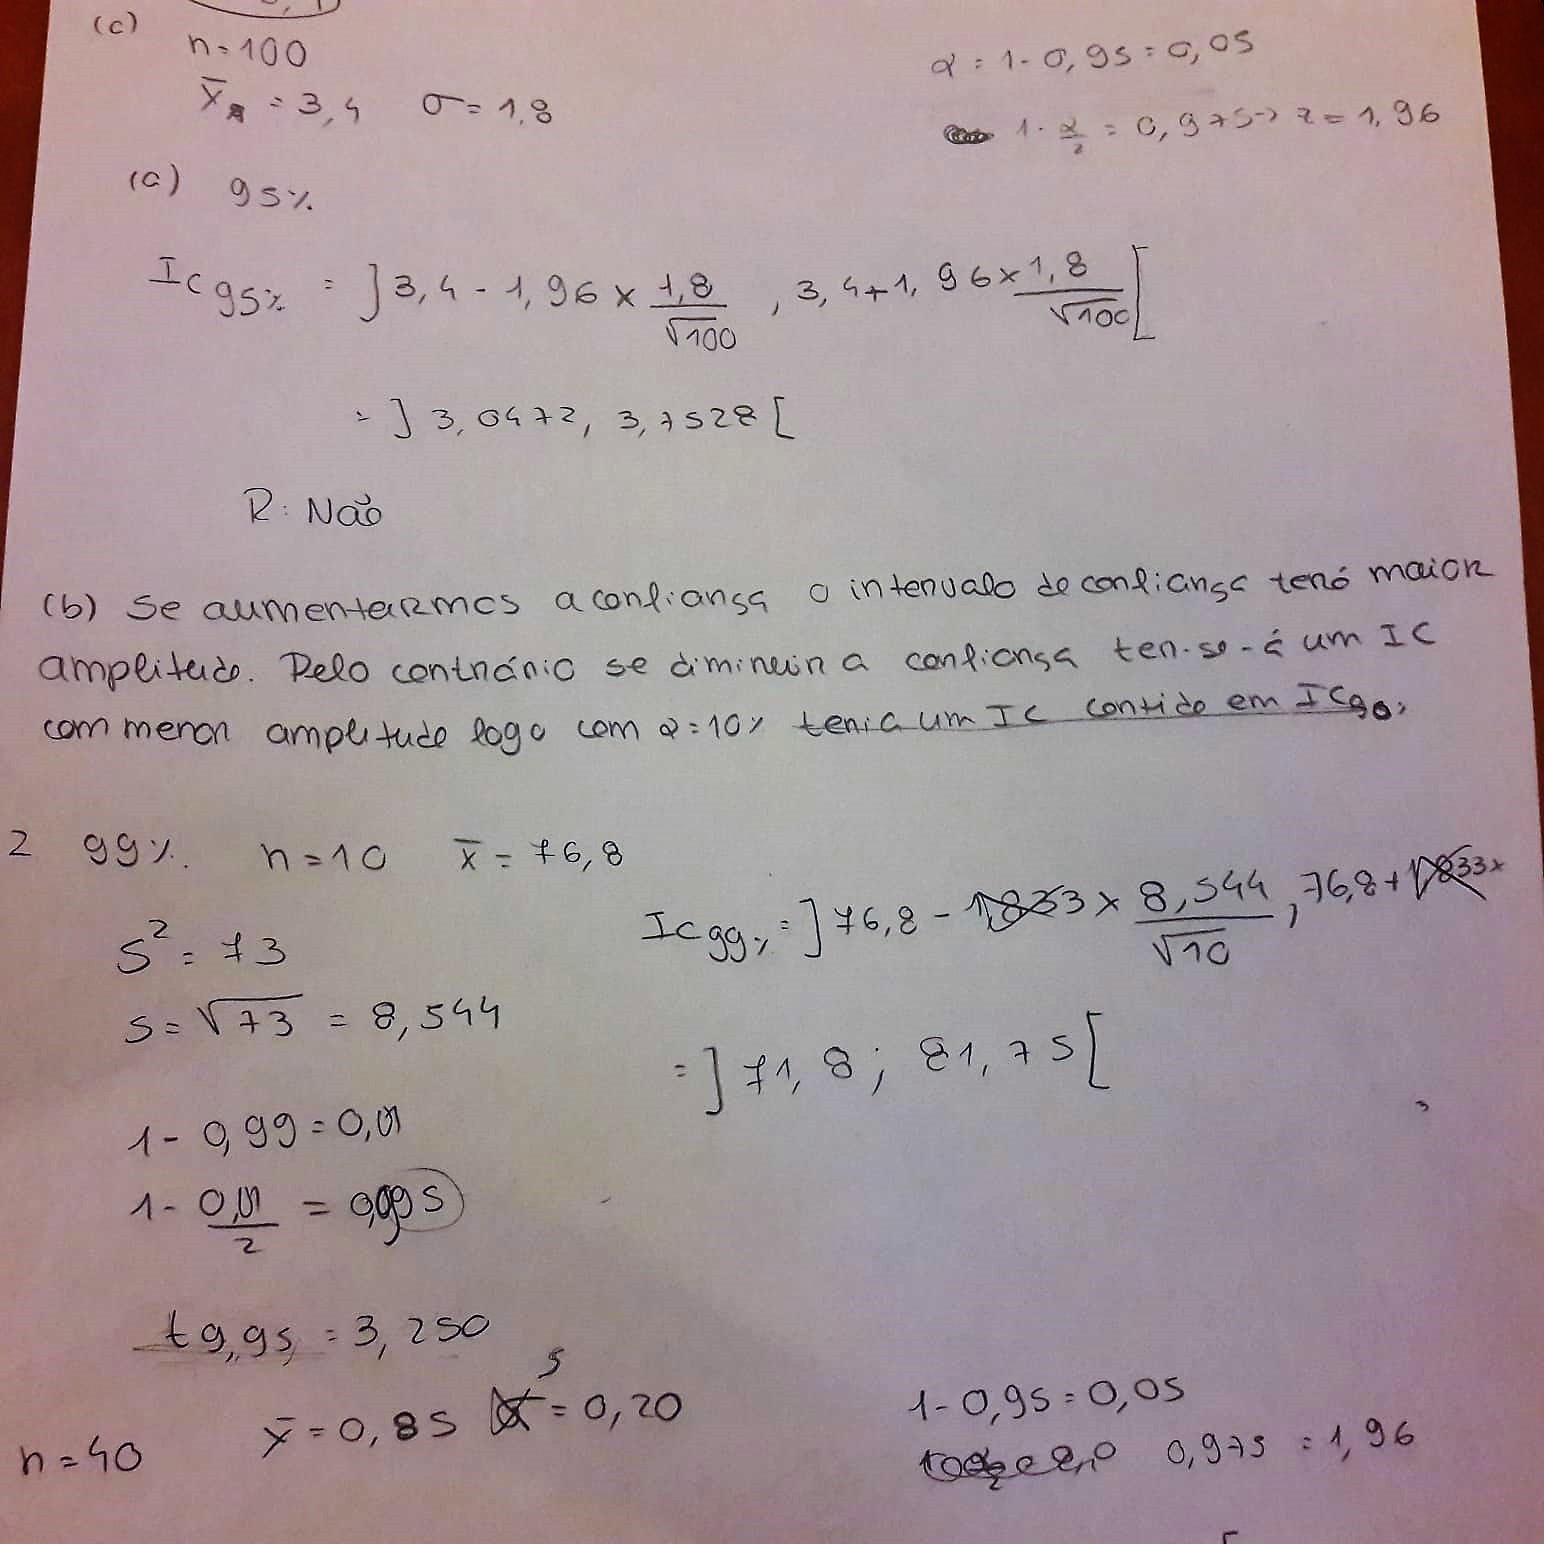 (c)
n=100
x̄ = 3,4 σ=1,8
α = 1-0,95=0,05
1-α/2 = 0,975→ z=1,96
(a) 95%
IC95% = ]3,4 - 1,96 × 1,8/√100 , 3,4+1,96×1,8/√100[
= ]3,0472, 3,7528[
R: Não
(b) Se aumentarmos a confiança o intervalo de confiança terá maior
amplitude. Pelo contrário se diminuir a confiança ter-se-á um IC
com menor amplitude logo com α=10% teria um IC contido em IC90%
2 99% n=10 x̄=76,8
S²=73
S=√73 = 8,544
IC99% = ]76,8 - 1,833 × 8,544/√10, 76,8+1,833×
= ]71,8; 81,75[
1-0,99=0,01
1- 0,01/2 = 0,995
t9,,95, =3,250
n=40 x̄=0,85 S=0,20
1-0,95=0,05
0,975 =1,96